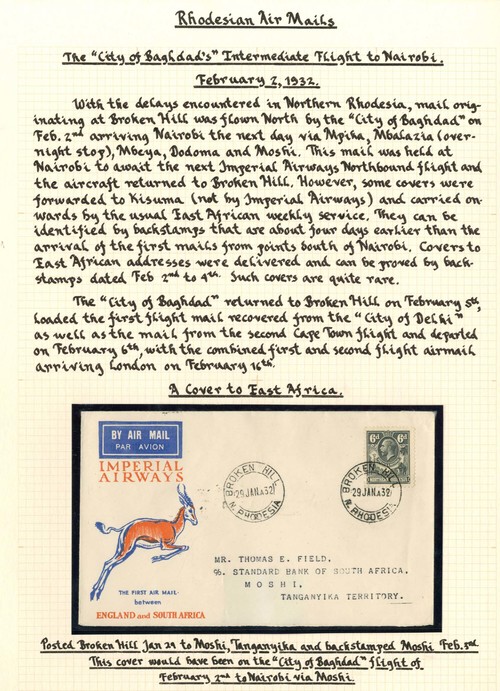 Rhodesian Air Mails
The "City of Baghdad's" Intermediate Flight to Nairobi.
February 2, 1932.
With the delays encountered in Northern Rhodesia, mail orig-
inating at Broken Hill was flown North by the "City of Baghdad" on
Feb. 2nd arriving Nairobi the next day via Mpika, Mbalazia (over-
night stop), Mbeya, Dodoma and Moshi. This mail was held at
Nairobi to await the next Imperial Airways Northbound flight and
the aircraft returned to Broken Hill. However, some covers were
forwarded to Kisuma (not by Imperial Airways) and carried on-
wards by the usual East African weekly service. They can be
identified by backstamps that are about four days earlier than the
arrival of the first mails from points South of Nairobi. Covers to
East African addresses were delivered and can be proved by back-
stamps dated Feb 2nd to 4th. Such covers are quite rare.
The "City of Baghdad" returned to Broken Hill on February 5th,
loaded the first flight mail recovered from the "City of Delhi"
as well as the mail from the second Cape Town flight and departed
on February 6th, with the combined first and second flight airmail
arriving London on February 16th.
A Cover to East Africa.
BY AIR MAIL
PAR AVION
IMPERIAL
AIRWAYS
6d 6d
NORTHERN RHODESIA
BROKEN HILL
29 JAN 32
N. RHODESIA
BROKEN HILL
29 JAN 32
N. RHODESIA
MR. THOMAS E. FIELD,
℅. STANDARD BANK OF SOUTH AFRICA,
MOSHI,
TANGANYIKA TERRITORY.
THE FIRST AIR MAIL
between
ENGLAND and SOUTH AFRICA
Posted Broken Hill Jan 29 to Moshi, Tanganyika and backstamped Moshi Feb. 3rd.
This cover would have been on the "City of Baghdad" flight of
February 2nd to Nairobi via Moshi.